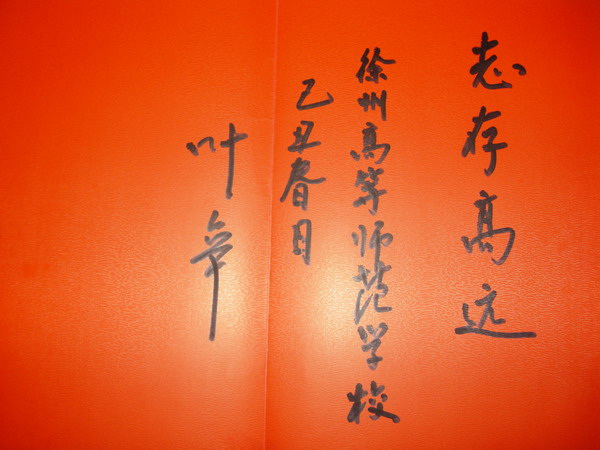 志存高远
徐州高等师范学校
己丑春日
叶辛